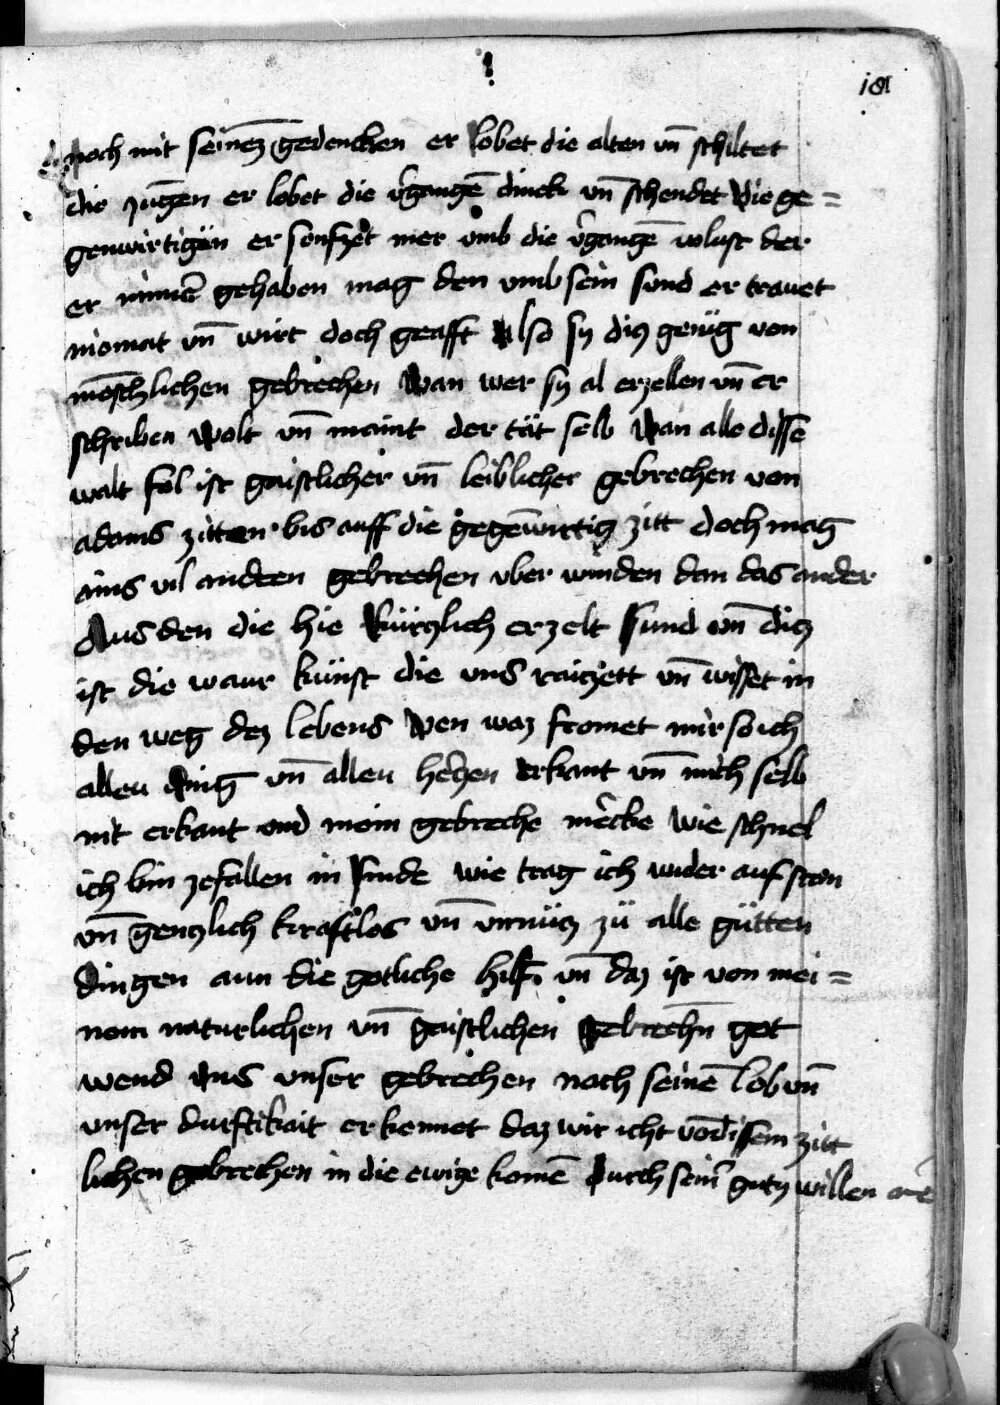 181
noch mit seinez gedencken er lobet die alten vn̄ schiltet
die Jugen er lobet die v̂gangē dinck vn̄ schendet die ge=
genwirtigän er sonfzet mer vmb die v̂gangē wolust der
er nimer gehaben mag den vmb sein sund er trauet
niemat vn̄ wirt doch geafft Also sy dis genüg von
menschlichen gebrechen Wan wer sy al erzellen vn̄ er
schriben wolt vn̄ maint der tät selb Wan alle disse
walt fol ist gaistlicher vn̄ leiblicher gebrechen von
adams zitten bis auff die gegēwirtig zitt doch mag
ains vil andern gebrechen vber winden dan das ander
Aus den die hie kürtzlich erzelt sund vn̄ dis
ist die waur künst die vns raitzett vn̄ wisset in
den weg dez lebens Wen waz fromet mir so ich
alleu ding vn̄ alleu hertzen erkant vn̄ mich selb
nit erkant vnd mein gebreche mercke wie schnel
ich bin zefallen in sunde wie trag ich wider auf stan
vn̄ gentzlich kraftlos vn̄ vnnütz zü alle gütten
dingen aun die gotliche hilf. vn̄ daz ist von mei=
nem naturlichen vn̄ gaistlichen gebrechn got
wend vns vnser gebrechen nach seinē lob vn̄
vnser durftikait erkennet daz wir icht von dissem zitt
lichen gebrechen in die ewige komē durch sein gutz willen